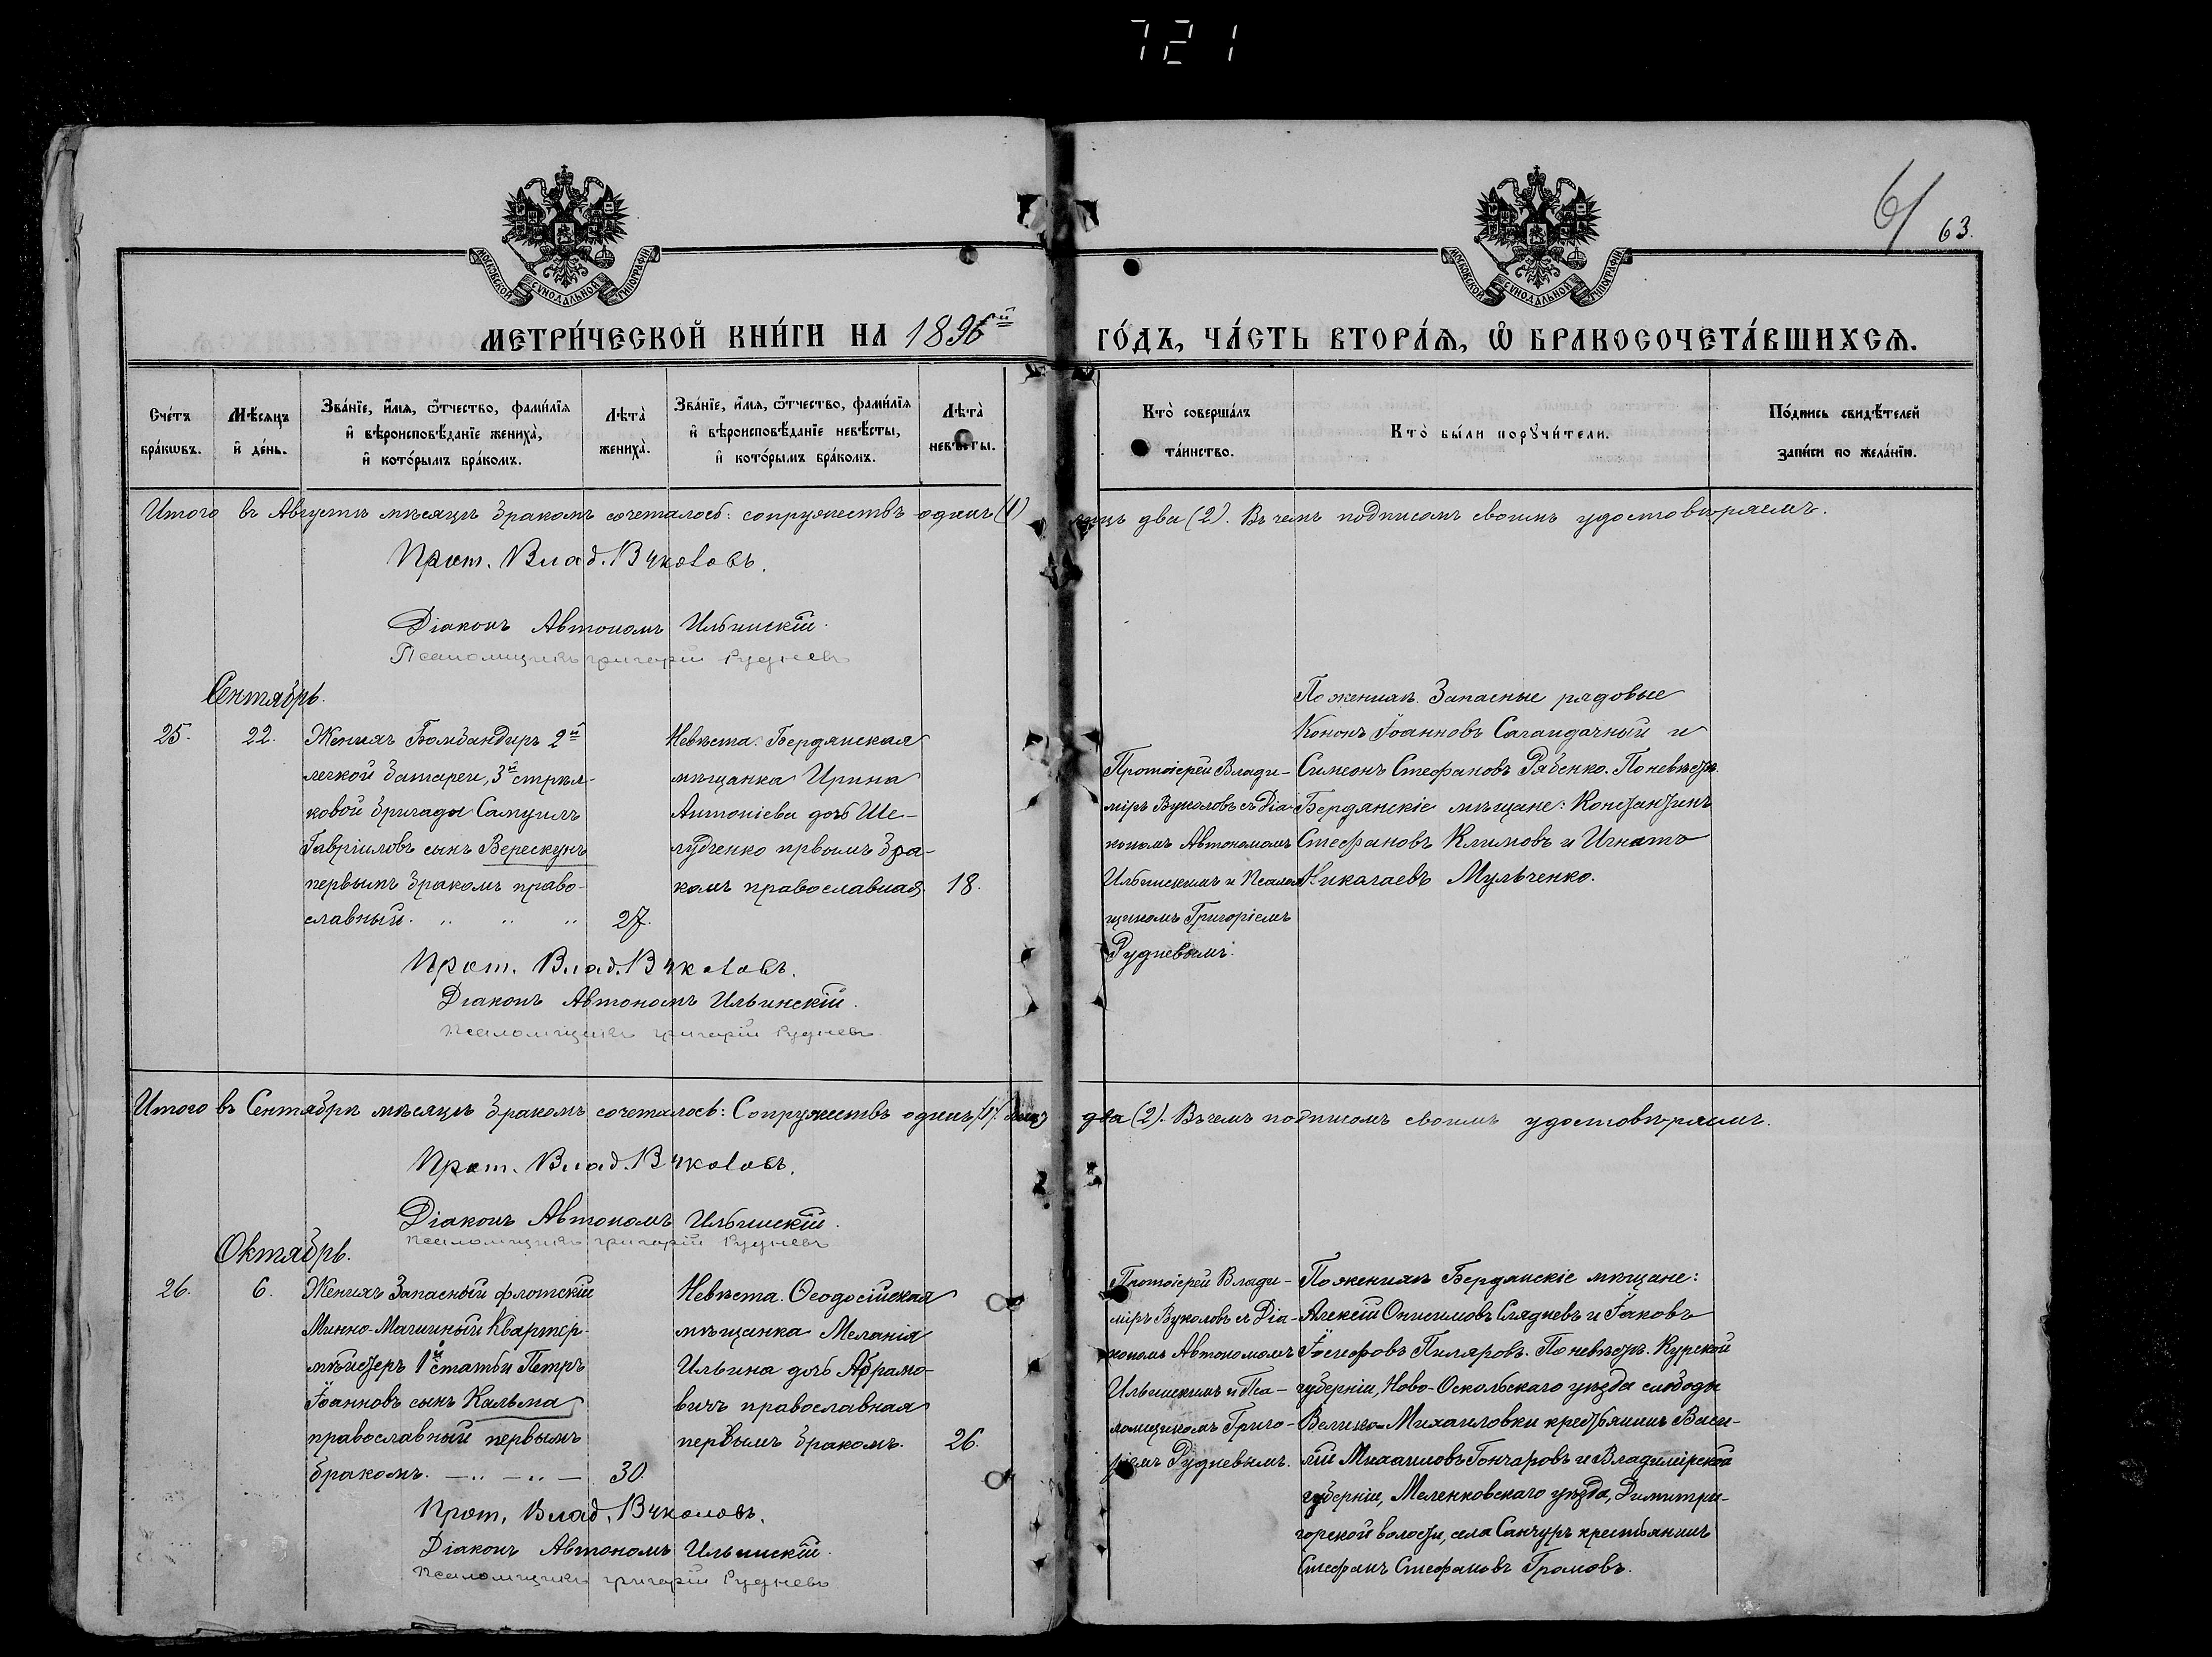 721
61
63.
МОСКОВСКОЙ СУНОДАЛЬНОЙ ТИПОГРАФІИ
МОСКОВСКОЙ СУНОДАЛЬНОЙ ТИПОГРАФІИ
МЕТРИ́ЧЕСКОЙ КНИ́ГИ НА 1896й ГО́ДЪ, ЧА́СТЬ ВТОРА́Ѧ, Ѡ҆ БРАКОСОЧЕТА́ВШИХСѦ.
Сче́тъ бра́кѡвъ.
Мѣ́сѧцъ и҆ де́нь.
Зва́нїе, и҆́мѧ, ѻ҆́тчество, фамі́лїѧ
и҆ вѣроисповѣ́данїе жениха̀,
и҆ кото́рымъ бра́комъ.
Лѣта̀ жениха̀.
Зва́нїе, и҆́мѧ, ѻ҆́тчество, фамі́лїѧ
и҆ вѣроисповѣ́данїе невѣ́сты,
и҆ кото́рымъ бра́комъ.
Лѣта̀ невѣ́сты.
Кто̀ соверша́лъ та́инство.
Кто̀ бы́ли порꙋчи́тели.
По́дпись свидѣ́телей за́писи по жела́нїю.
Итого въ Августѣ мѣсяцѣ бракомъ сочеталось: сопружествъ одинъ (1) лицъ два (2). Въ чемъ подписомъ своимъ удостовѣряемъ.
Прот. Влад. Вуколовъ.
Діаконъ Автономъ Ильинскій.
Псаломщикъ Григорій Рудневъ
Сентябрь.
25.
22.
Женихъ Бомбандиръ 2й
легкой батареи, 3й стрѣл-
ковой бригады Самуилъ
Гавріиловъ сынъ Верескунъ
первымъ бракомъ право-
славный.
27.
Невѣста: Бердянская
мѣщанка Ирина
Антоніева дочь Ше-
лудченко првымъ бра-
комъ православная.
18.
Протоіерей Влади-
міръ Вуколовъ съ Діа-
кономъ Автономомъ
Ильинскимъ и Псалом
щикомъ Григоріемъ
Рудневымъ.
По женихѣ. Запасные рядовые
Кононъ Іоанновъ Сагаидачный и
Симеонъ Стефановъ Рябенко. По невѣстѣ.
Бердянскіе мѣщане: Константинъ
Стефановъ Климовъ и Игнатъ
Николаевъ Мульченко.
Прот. Влад. Вуколовъ.
Діаконъ Автономъ Ильинскій.
Псаломщикъ Григорій Рудневъ
Итого въ Сентябрѣ мѣсяцѣ бракомъ сочеталось: Сопружествъ одинъ (1) лицъ два (2). Въ чемъ подписомъ своимъ удостовѣряемъ.
Прот. Влад. Вуколовъ.
Діаконъ Автономъ Ильинскій.
Псаломщикъ Григорій Рудневъ
Октябрь.
26.
6.
Женихъ Запасный флотскій
Минно-Машинный Квартер-
мѣйстеръ 1й статьи Петръ
Іоанновъ сынъ Кальма
православный первымъ
бракомъ.
30.
Невѣста. Ѳеодосійская
мѣщанка Меланія
Ильина дочь Абрамо-
вичъ православная
первымъ бракомъ.
26.
Протоіерей Влади-
міръ Вуколовъ съ Діа-
кономъ Автономомъ
Ильинскимъ и Пса-
ломщикомъ Григо-
ріемъ Рудневымъ.
По женихѣ Бердянскіе мѣщане:
Алексій Онисимовъ Слядневъ и Іаковъ
Іосифовъ Пиляровъ. По невѣстѣ. Курской
губерніи, Ново-Оскольскаго уѣзда слободы
Велико-Михаиловки крестьянинъ Васи-
лій Михаиловъ Гончаровъ и Владимірской
губерніи, Меленковскаго уѣзда, Димитри-
горской волости, села Санчуръ крестьянинъ
Стефанъ Стефановъ Громовъ.
Прот. Влад. Вуколовъ.
Діаконъ Автономъ Ильинскій.
Псаломщикъ Григорій Рудневъ